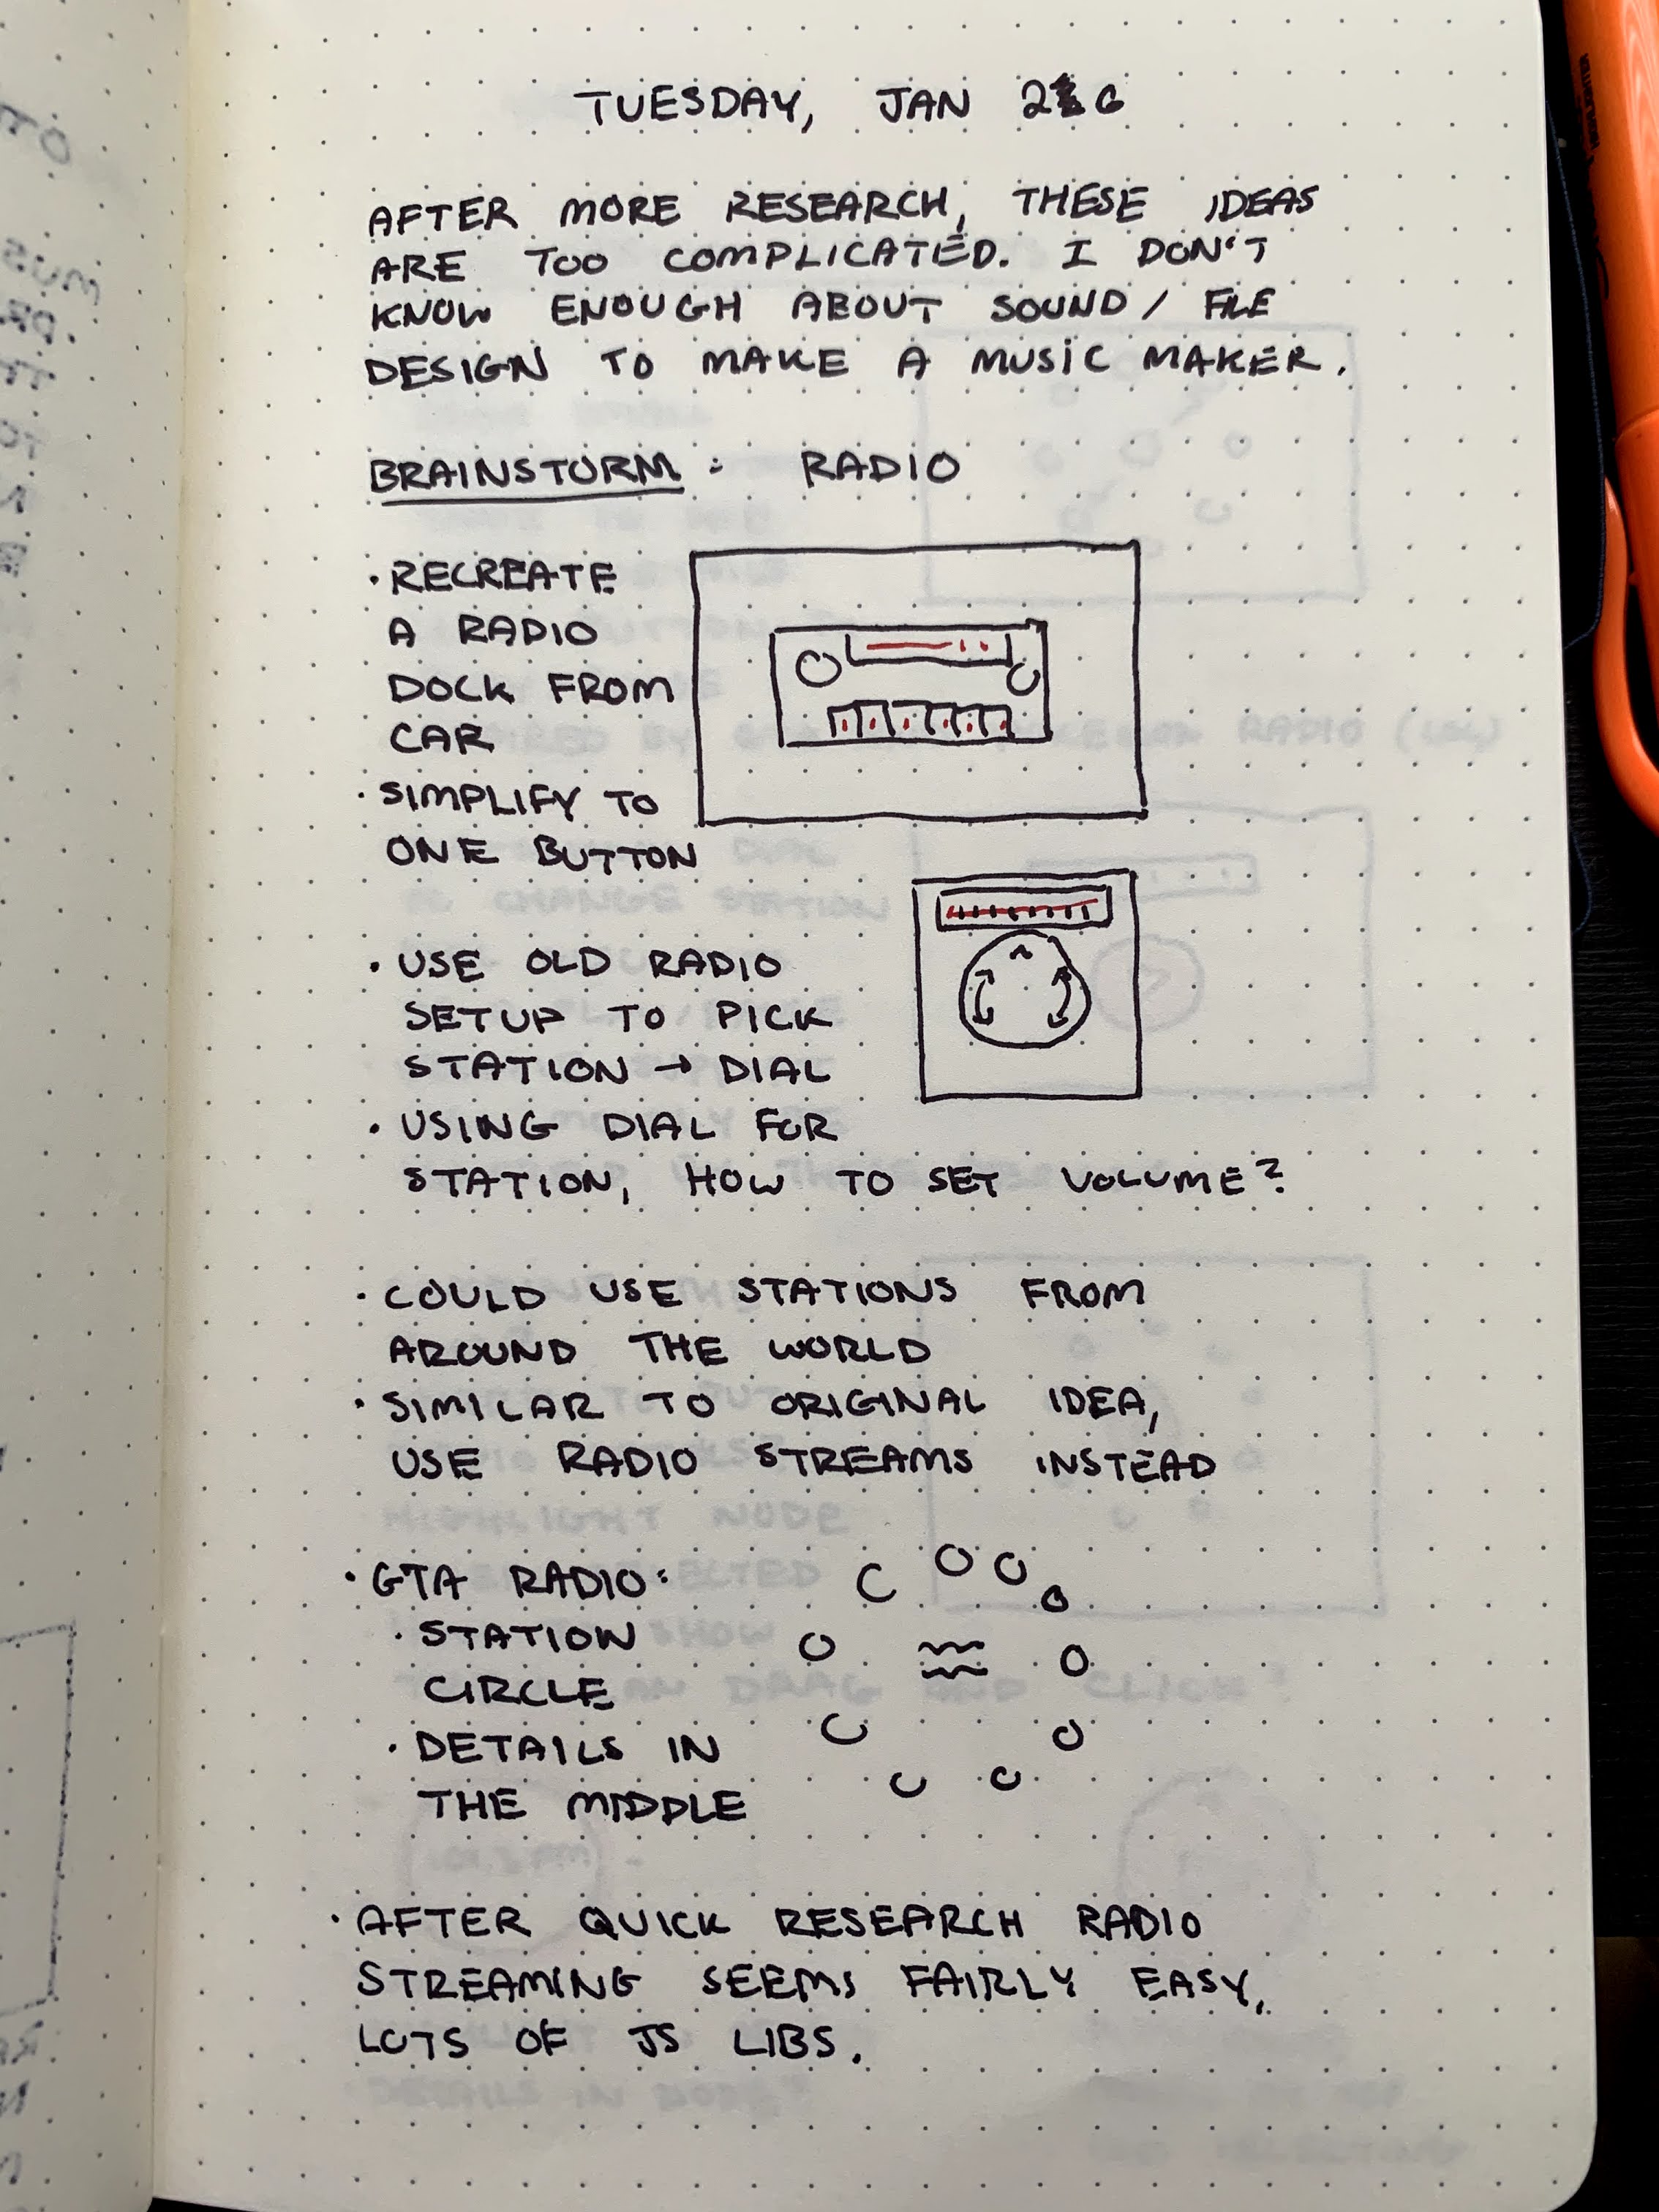 TUESDAY, JAN 26
AFTER MORE RESEARCH, THESE IDEAS
ARE TOO COMPLICATED. I DON'T
KNOW ENOUGH ABOUT SOUND / FILE
DESIGN TO MAKE A MUSIC MAKER.
BRAINSTORM: RADIO
· RECREATE
A RADIO
DOCK FROM
CAR
· SIMPLIFY TO
ONE BUTTON
· USE OLD RADIO
SETUP TO PICK
STATION → DIAL
· USING DIAL FOR
STATION, HOW TO SET VOLUME?
· COULD USE STATIONS FROM
AROUND THE WORLD
· SIMILAR TO ORIGINAL IDEA,
USE RADIO STREAMS INSTEAD
· GTA RADIO:
· STATION
CIRCLE
· DETAILS IN
THE MIDDLE
· AFTER QUICK RESEARCH RADIO
STREAMING SEEMS FAIRLY EASY,
LOTS OF JS LIBS.